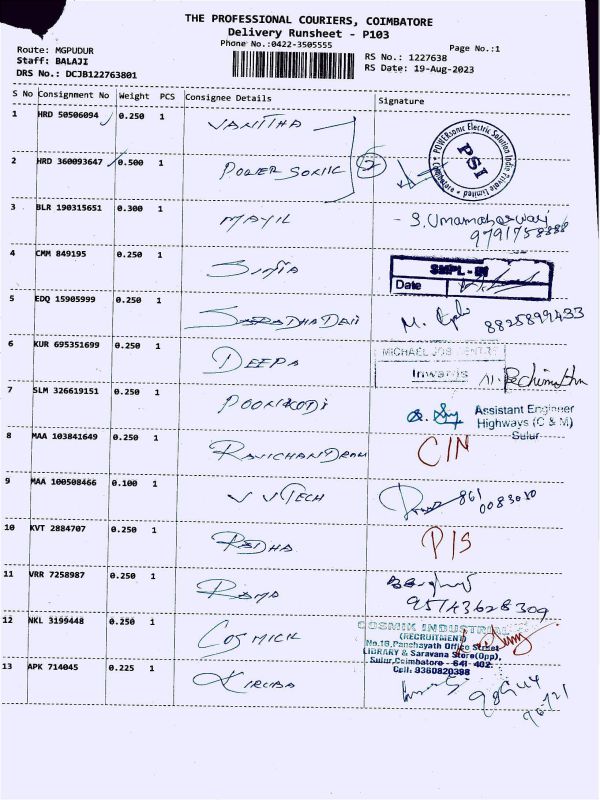 THE PROFESSIONAL COURIERS, COIMBATORE
Delivery Runsheet - P103
Phone No.:0422-3505555
Page No.:1
Route: MGPUDUR
Staff: BALAJI
DRS No.: DCJB122763801
RS No.: 1227638
RS Date: 19-Aug-2023
S No Consignment No Weight PCS Consignee Details Signature
1 HRD 50506094 0.250 1 VANITHA
POWERsonic Electric Solution India Private Limited
PSI
2 HRD 360093647 0.500 1 POWER SONIC 2
3 BLR 190315651 0.300 1 MAYIL - S. Umamaheswari
9791758388
4 CMM 849195 0.250 1
SMPL - IN
Date
5 EDQ 15905999 0.250 1 M. 8825899433
6 KUR 695351699 0.250 1 DEEPA
MICHAEL JOB CENTRE
Inwards
7 SLM 326619151 0.250 1 POONKODI
Assistant Engineer
Highways (C & M)
Sulur
8 MAA 103841649 0.250 1 RAVICHANDRAN C/N
9 MAA 100508466 0.100 1 V V TECH 861
0083030
10 KVT 2884707 0.250 1 RADHA P/S
11 VRR 7258987 0.250 1 RAMA
95143628309
12 NKL 3199448 0.250 1 COSMICK
COSMIK INDUSTRIAL
(RECRUITMENT)
No.18,Panchayath Office Street
LIBRARY & Saravana Store(Opp),
Sulur,Coimbatore - 641 402.
Cell: 9360820398
13 APK 714045 0.225 1 KIRUBA